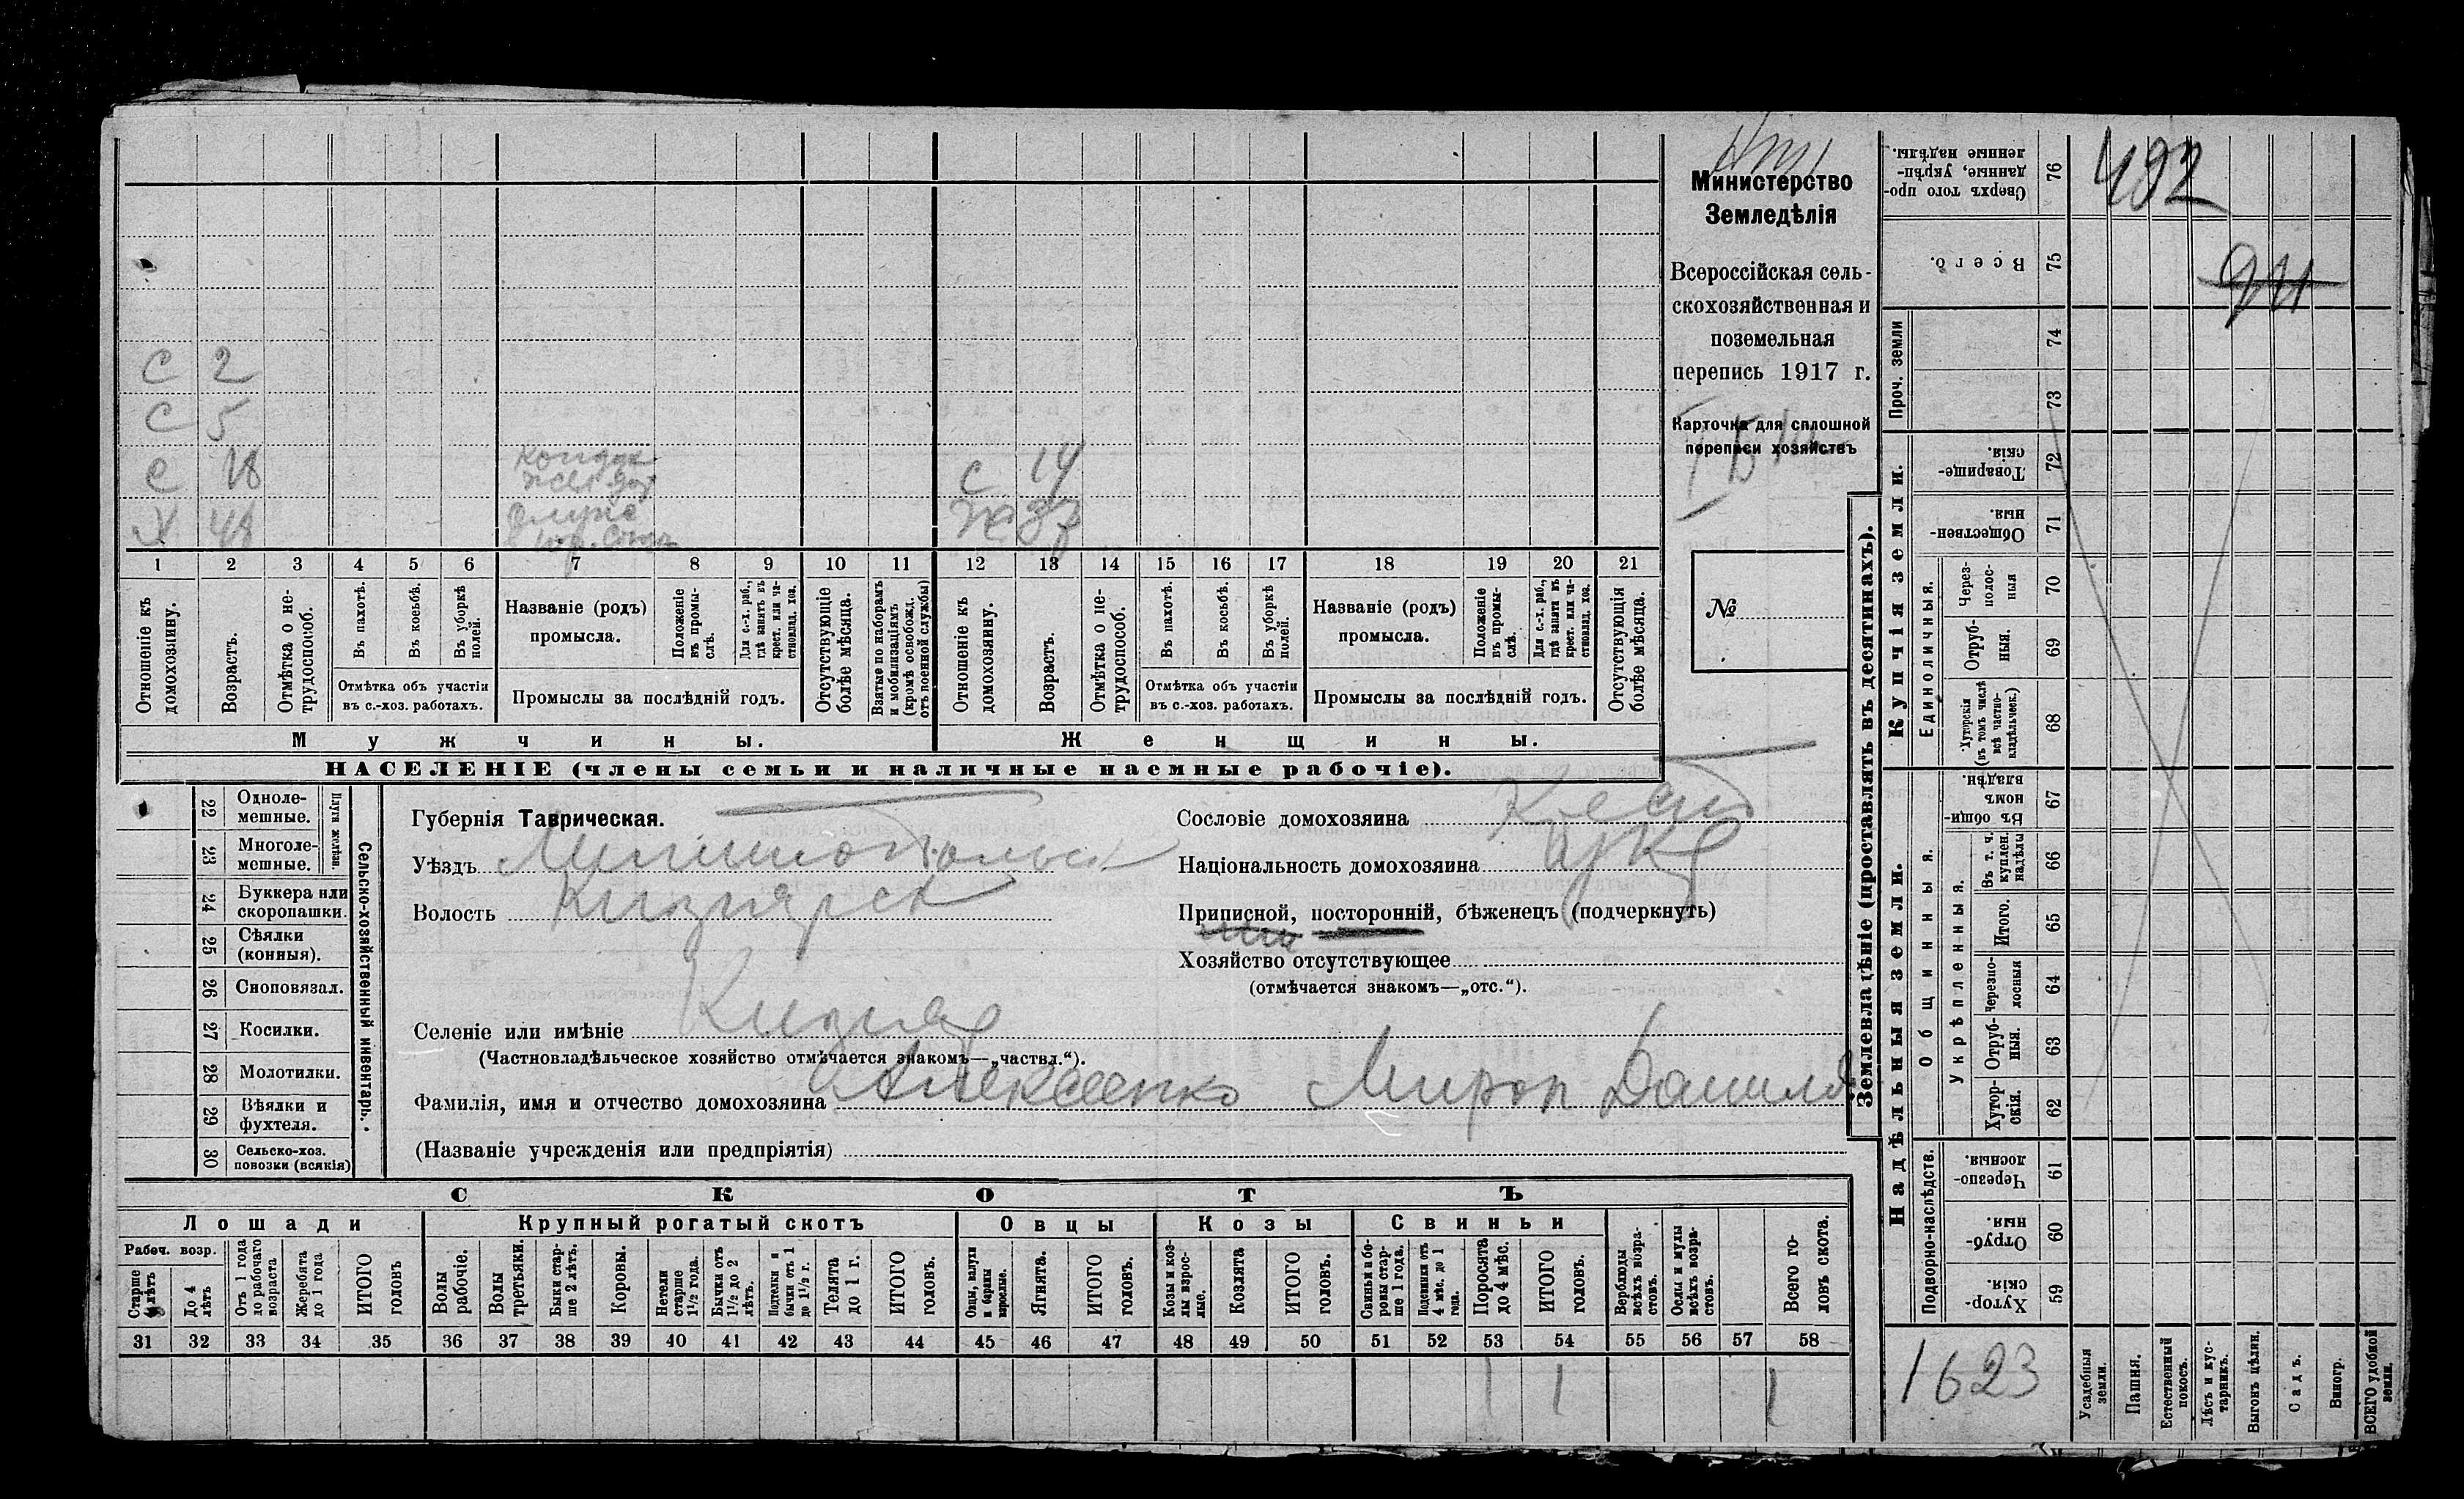 Министерство
Земледѣлія
Всероссійская сель-
скохозяйственная и
поземельная
перепись 1917 г.
Карточка для сплошной
переписи хозяйствъ
№
С 2
С 5
С 18
С 14
Х 48
37
1 2 3 4 5 6 7 8 9 10 11 12 13 14 15 16 17 18 19 20 21
Отношеніе къ домохозяину.
Возрастъ.
Отмѣтка о не-трудоспособ.
Въ пахотѣ.
Въ косьбѣ.
Въ уборкѣ полей.
Отмѣтка объ участіи
въ с.-хоз. работахъ.
Названіе (родъ)
промысла.
Положеніе въ промы-слѣ.
Для с.-х. раб., гдѣ занятъ въ крест. или ча-стновлад. хоз.
Промыслы за послѣдній годъ.
Отсутствующіе болѣе мѣсяца.
Взятые по наборамъ и мобилизаціямъ (кромѣ освобожд. отъ военной службы)
Отношеніе къ домохозяину.
Возрастъ.
Отмѣтка о не-трудоспособ.
Въ пахотѣ.
Въ косьбѣ.
Въ уборкѣ полей.
Отмѣтка объ участіи
въ с.-хоз. работахъ.
Названіе (родъ)
промысла.
Положеніе въ промы-слѣ.
Для с.-х. раб., гдѣ заняты въ крест. или ча-стновлад. хоз.
Промыслы за послѣдній годъ.
Отсутствующія болѣе мѣсяца.
Мужчины.
Женщины.
НАСЕЛЕНІЕ (члены семьи и наличные наемные рабочіе).
22 Одноле-мешные.
23 Многоле-мешные.
Плуги желѣзн.
24 Буккера или скоропашки.
25 Сѣялки (конныя).
26 Сноповязал.
27 Косилки.
28 Молотилки.
29 Вѣялки и фухтеля.
30 Сельско-хоз. повозки (всякія)
Сельско-хозяйственный инвентарь.
Губернія Таврическая.
Уѣздъ Мелитопольск
Волость Кизіярск
Селеніе или имѣніе Кизіяр
(Частновладѣльческое хозяйство отмѣчается знакомъ—„частвл.“).
Фамилія, имя и отчество домохозяина Алексеенко Мирон Данилов
(Названіе учрежденія или предпріятія)
Сословіе домохозяина Крест
Національность домохозяина укр
Приписной, посторонній, бѣженецъ (подчеркнуть)
Хозяйство отсутствующее
(отмѣчается знакомъ—„отс.“).
СКОТЪ
Лошади
Крупный рогатый скотъ
Овцы
Козы
Свиньи
Рабоч. возр.
Старше 4 лѣтъ
До 4 лѣтъ
Отъ 1 года до рабочаго возраста
Жеребята до 1 года
ИТОГО головъ
Волы рабочіе.
Волы третьяки.
Быки стар-ше 2 лѣтъ.
Коровы.
Нетели старше 1½ года.
Бычки отъ 1½ до 2 лѣтъ.
Подтелки и бычки отъ 1 до 1½ г.
Телята до 1 г.
ИТОГО головъ.
Овцы, валухи и бараны взрослые.
Ягнята.
ИТОГО головъ.
Козы и коз-лы взрос-лые.
Козлята
ИТОГО головъ.
Свиньи и бо-ровы стар-ше 1 года.
Подсвинки отъ 4 мѣс. до 1 года.
Поросята до 4 мѣс.
ИТОГО головъ.
Верблюды всѣхъ возра-стовъ.
Ослы и мулы всѣхъ возра-стовъ.
Всего го-ловъ скота.
31 32 33 34 35 36 37 38 39 40 41 42 43 44 45 46 47 48 49 50 51 52 53 54 55 56 57 58
1 1 1
Землевладѣніе (проставлять въ десятинахъ).
Купчія земли.
Надѣльныя земли.
492
911
76 Сверхъ того про-данные, укрѣп-ленные надѣлы.
75 Всего.
Проч. земли
74
73
72 Товарище-скія.
71 Обществен-ныя.
Единоличныя.
70 Через-полос-ныя
69 Отруб-ныя.
68 Хуторскія (въ томъ числѣ всѣ частно-владѣльческ.)
Общинныя.
67 Въ общи-номъ владѣн.
Укрѣпленныя.
66 Въ т. ч. куплен. надѣлы
65 Итого.
64 Черезпо-лосныя
63 Отруб-ныя.
62 Хутор-скія.
Подворно-наслѣдств.
61 Черезпо-лосныя.
60 Отруб-ныя.
59 Хутор-скія.
1623
Усадебныя земли.
Пашня.
Естественный покосъ.
Лѣсъ и кус-тарникъ.
Выгонъ цѣлин.
Садъ.
Виногр.
ВСЕГО удобной земли.